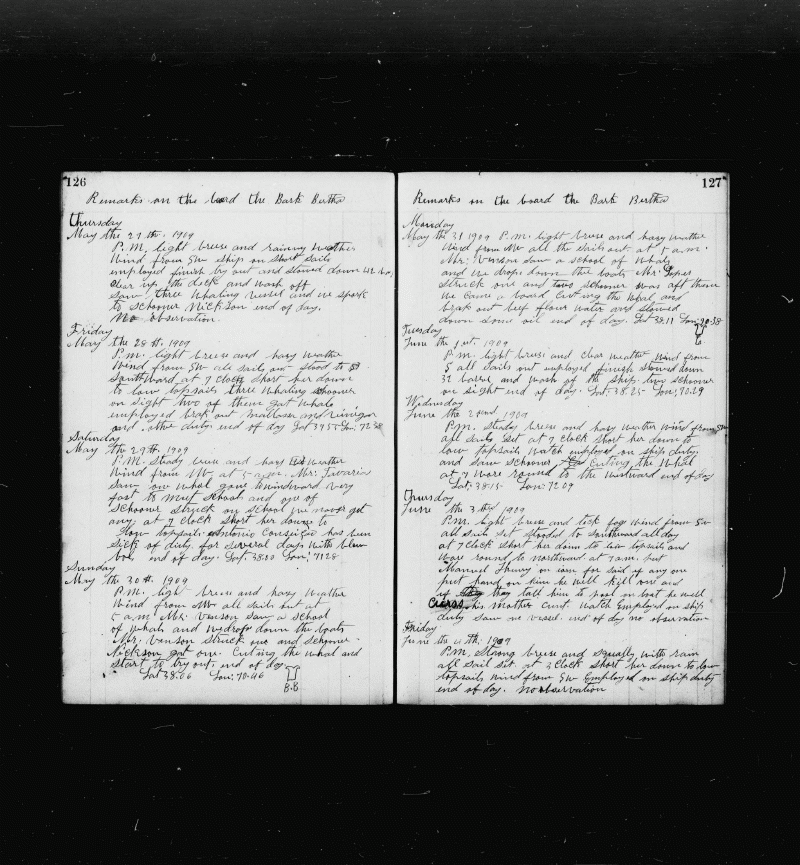 126
Remarks on the board the Bark Bertha
Thursday
May the 27 th. 1909
P.M. light breese and rainny weather
Wind from SW ship on short sails
employed finish try out and stowed down
clear up the dick and wash off
Saw three whaling vessel and we spork
to schooner Nickson end of day.
No observation.
Friday
May the 28 th. 1909
P.M. light breese and hasy weather
Wind from SW all sails out stood to
Southward at 7 clock short her down
to low topsails three whaling schooner
on sight two of them got whals
employed brak out mallasses and
and other duties end of day
Saturday
May the 29 th. 1909
P.M. stady breese and hasy weather
Wind from SW. at 5 a.m. Mr. Tavaris
saw one whal gone windward very
fast to meef schools and one of
schooner struck on school we never get
any, at 7 clock short her downe to
low topsails Antonio has ben
sick of duty for several days with
end of day. Lat. 38.00 Lon. 71.28
Sunday
May the 30 th. 1909
P.M. light breese and hasy weather
Wind from SW all sails but at
5 a.m. Mr. Venson saw a school
of whals and we drop down the boats
Mr. Venson struck one and schooner
Nickson got one. Cuting the whal and
start to try out, end of day
Lat 38.06 Lon: 70.46
B.B
127
Remarks on the board the Bark Bertha
Monday
May the 31 1909 P.M. light breese and hasy weather
Wind from SW all the sails out. at 5 a.m.
Mr. Venson saw a school of whals
and we drops down the boats Mr. Lopes
struck one and two schooner was aft them
we came a board cuting the whal and
brak out beef flour water and slowed
down some oil end of day. Lat 38.11 Lon: 70.38
Tuesday
June the 1 st. 1909
P.M. light breese and clear weather wind from
S all sails out employed finish stowed down
32 barrel and wash of the ship. two schooner
on sight end of day. Lat. 38.25 Lon. 70.29
Wednesday
June the 2 nd. 1909
P.M. Stady breese and hasy weather Wind from SW
all sails set at 7 clock short her down to
low topsails watch employed on ship duty
and saw schooner cuting the whal
at 7 wore round to the westward end of day
Lat: 38.15 Lon: 72.09
Thursday
June the 3 th. 1909
P.M. light breese and tick fog wind from SW
all sails set stooded to Southward all day
at 7 clock short her down to low topsails and
wore round to northward at 7 a.m. but
Manuel on iam for said if any one
put hand on him he will kill one and
if they tall him to pool in boat he well
his mother cunt. Watch Employed on ship
duty saw no vessel. end of day no observation
Friday
June the 4 Th. 1909
P.M. Strong breese and squally with rain
all sail sit. at 3 clock short her down to low
topsails wind from SW Employed on ship duty
end of day. No observation